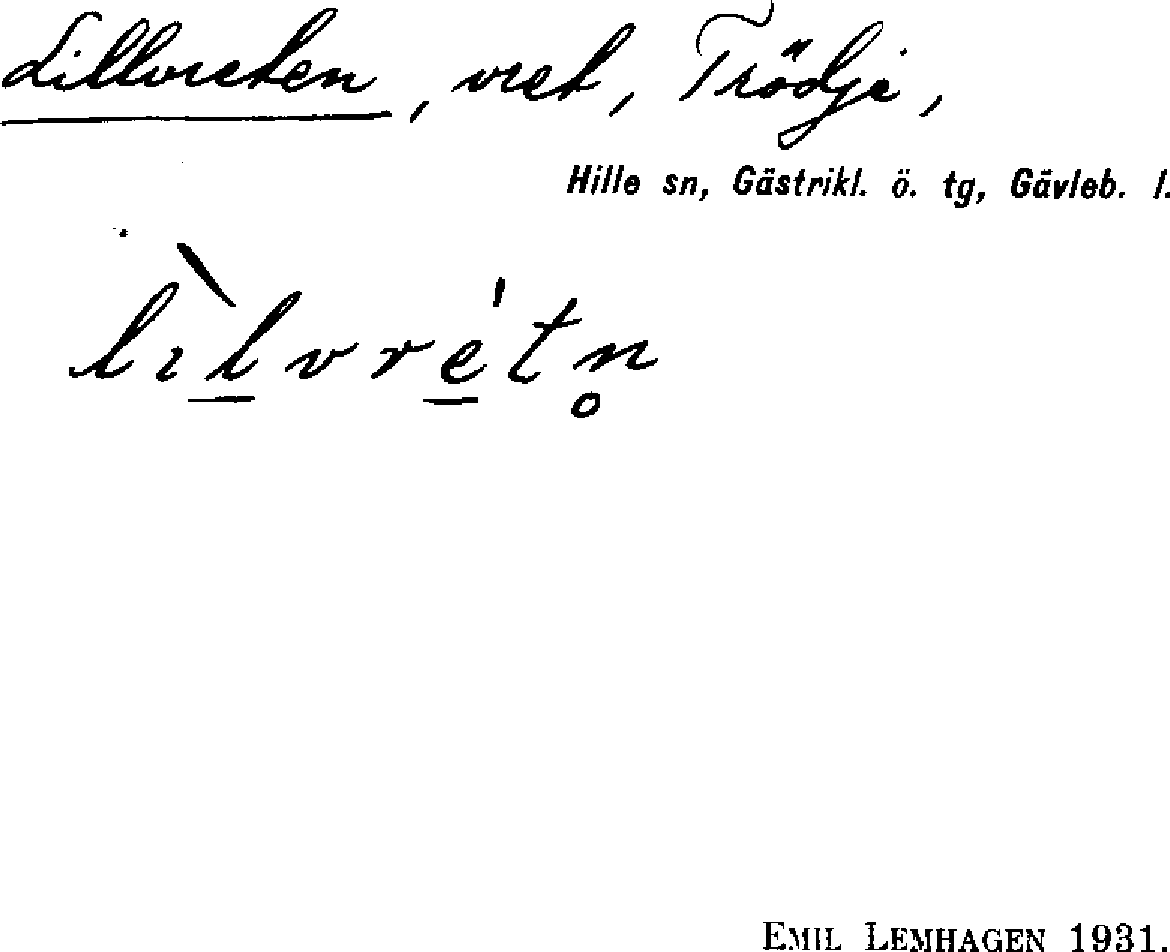 Lillvreten, vret, Trödje,
Hille sn, Gästrikl. ö. tg, Gävleb. l.
lɪ̀l̲vré̲tn̥
EMIL LEMHAGEN 1931.